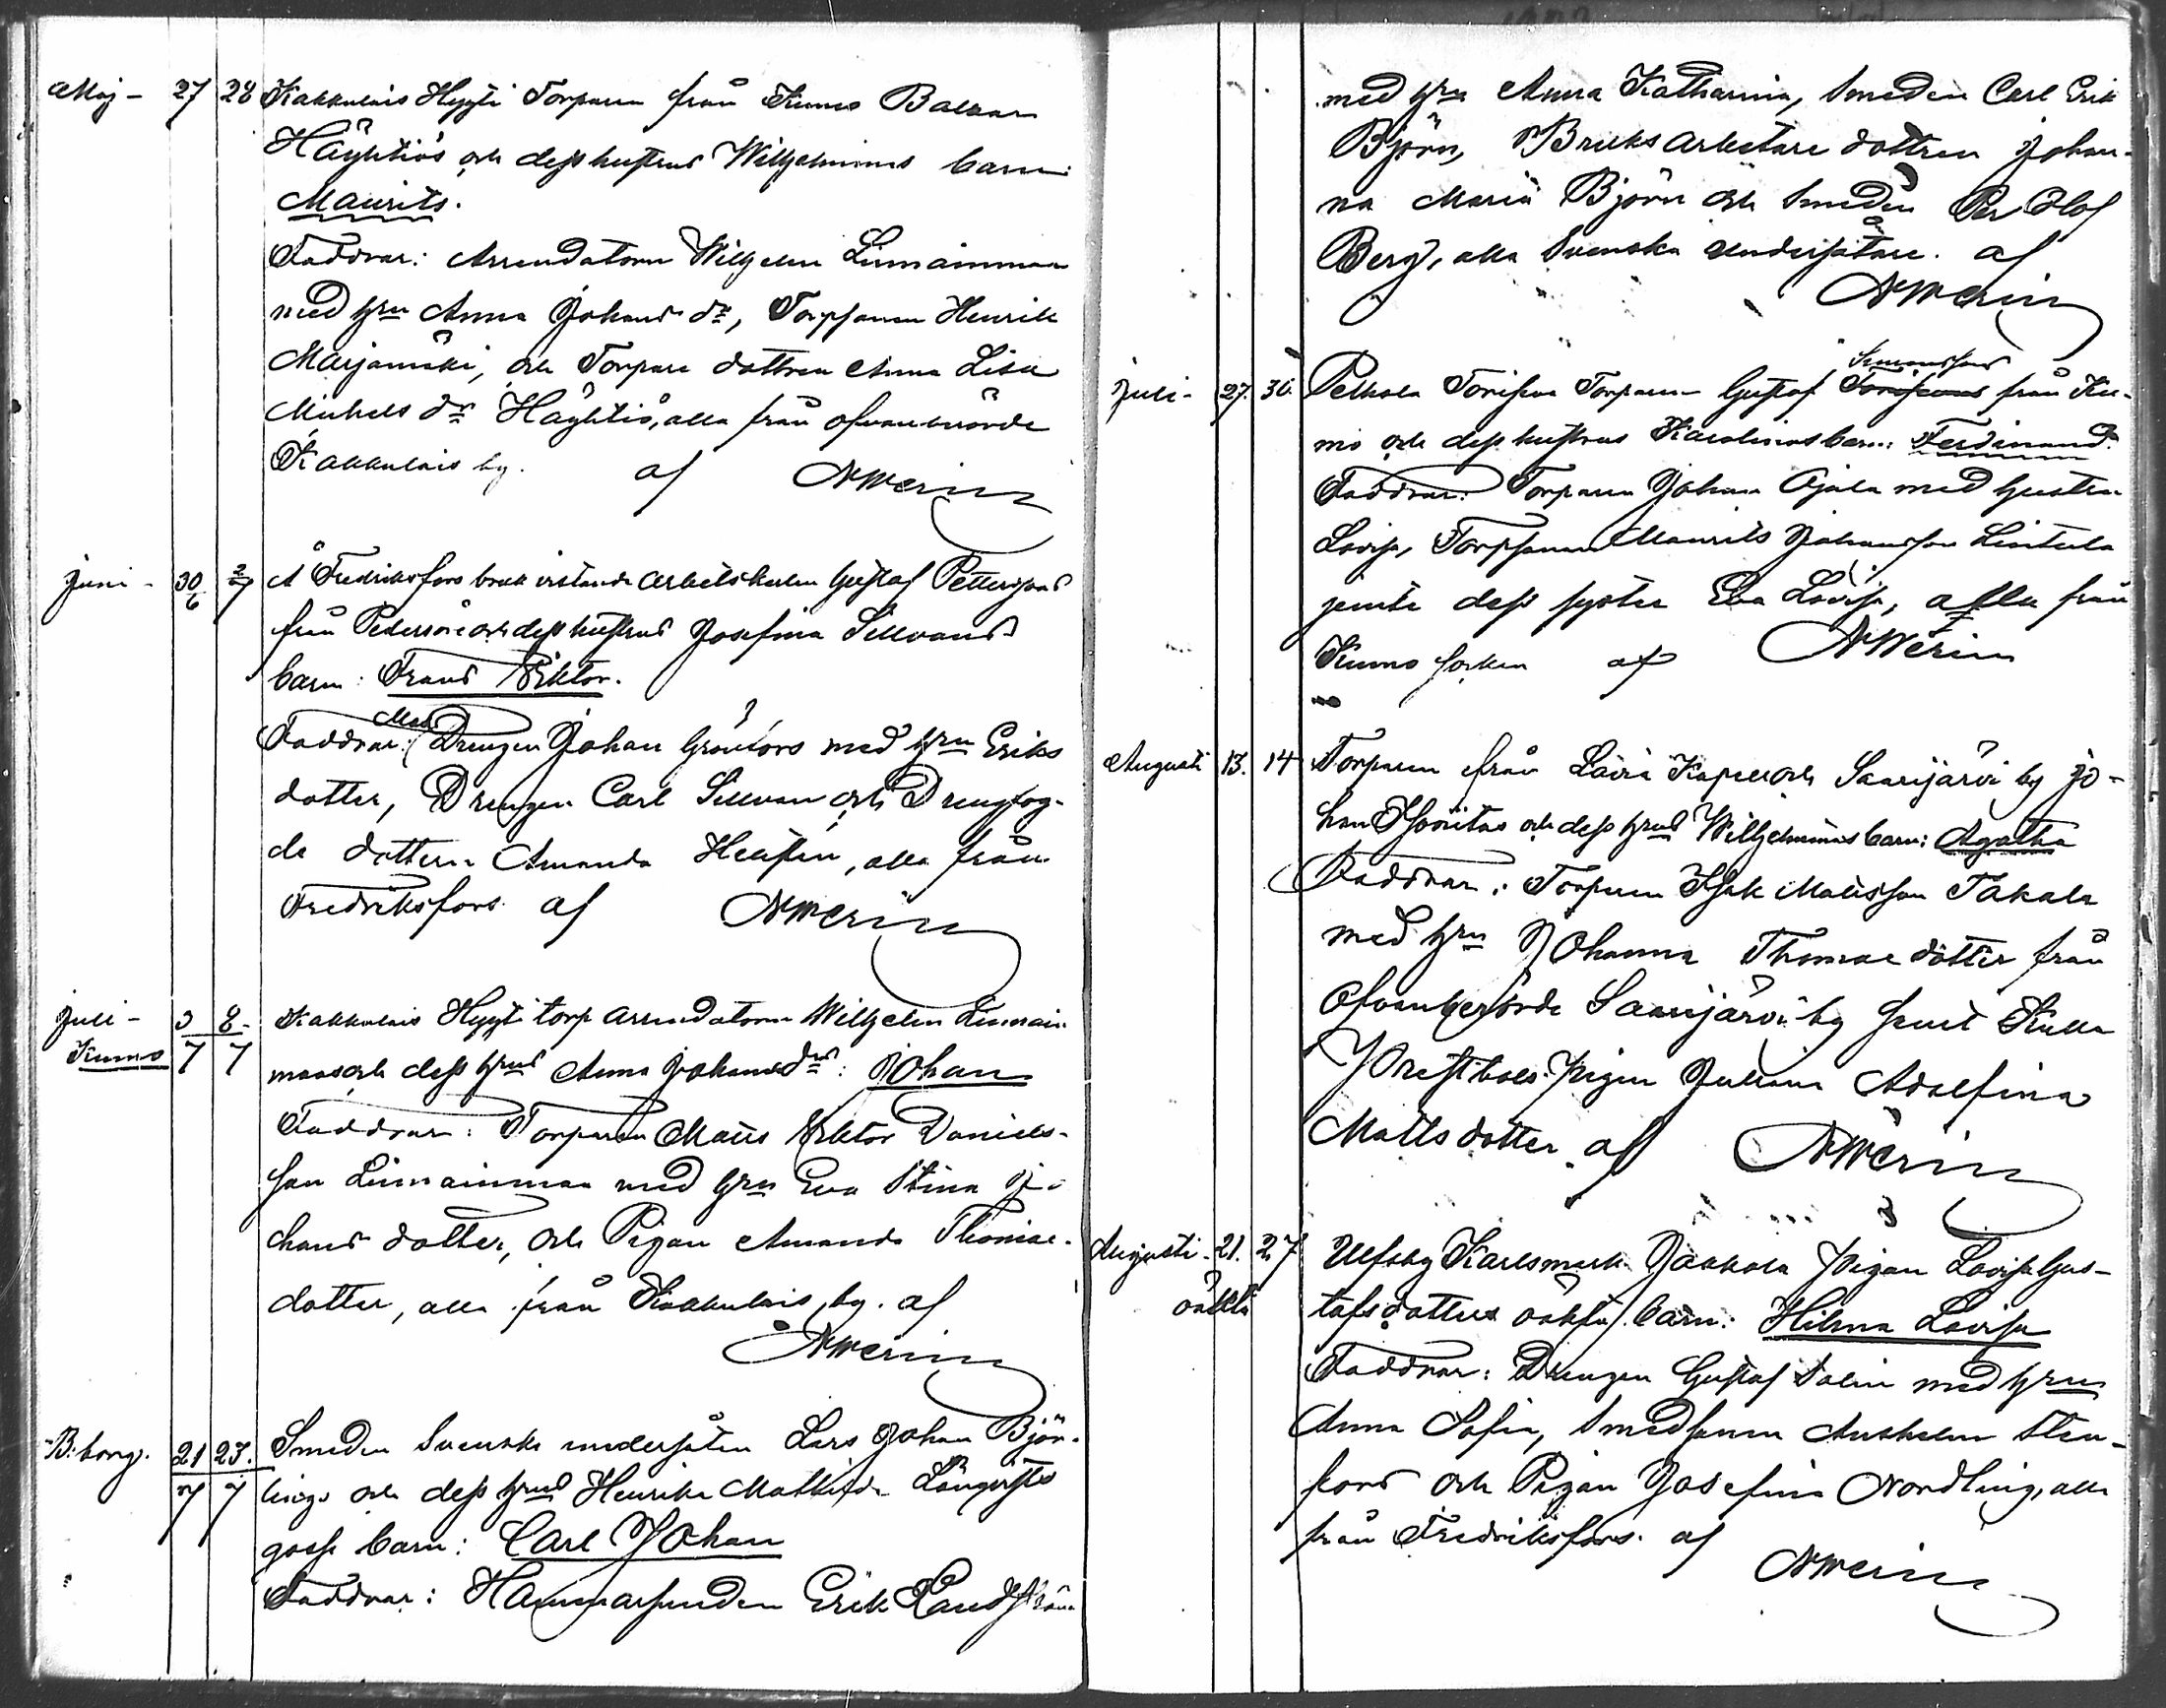 Maj - 27 28 Kakkulais Hyyti Torparen från Kumo Balzar
Häyhtiös och dess hustrus Wilhelminas barn:
Maurits.
Faddrar: Arrendatorn Wilhelm Liinamaa
med hru Anna Johans dr, Torpsonen Henrik
Marjamäki, och Torpare dottren Anna Lisa
Michels dr Häyhtiö, alla från ofvanberörde
Kakkulais by. af AWerin
Juni - 30/6 2/7 Å Fredriksfors bruk vistande arbetskarlen Gustaf Petterssons
från Pedersöre och dess hustrus Josefina Sillvans
barn: Frans Viktor.
Faddrar: Drengen Johan Grönfors med hru Eriks
dotter, Drengen Carl Sillvan och Drengfog-
de dottern Amanda Hellsten, alla från
Fredriksfors. af AWerin
Juli - 3/7 8/7 Kakkulais Hyyti torp arrendatorn Wilhelm
Kumo
och dess hrus Anna Johansdrs: Johan
Faddrar: Torparen Matts Viktor Daniels-
son med hru Eva Stina Jo-
hans dotter, och Pigan Amanda Thomae-
dotter, alla från Kakkulais by. af
AWerin
B:borg. 21/7 23/7 Smeden Svenske undersåten Lars Johan Björ-
lings och dess hrus Henrika Mathilda Långqvists
gosse barn: Carl Johan
Faddrar: Hammarsmeden Erik Landström
med hru Anna Katharina, Smeden Carl Erik
Björn, Bruksarbetare dottren Johan-
na Maria Björn och Smeden Per Olof
Berg, alla Svenska undersåtare. af
AWerin
Juli - 27. 30. Pelkola Toriseva Torparen Gustaf Simonssons från Ku-
mo och dess hustrus Karolinas barn: Ferdinand.
Faddrar: Torparen Johan Ojala med hustru
Lovisa, Torpsonen Maurits Johansson Lintula
jemte dess syster Eva Lovisa, alla från
Kumo socken af AWerin
Augusti 13. 14 Torparen från Lavia Kapell och Saarijärvi by Jo-
han och dess hrus Wilhelminas barn: Agatha
Faddrar: Torparen Isak Matsson Takala
med hru Johanna Thomae dotter från
ofvanberörde Saarijärvi by samt Kulla
Prestbols Pigan Juliana Adolfina
Matts dotter. af AWerin
Augusti - 21. 27 Ulfsby Karlsmark Jaakola Pigan Lovisa Gus-
oäkta
tafsdotters oäkta barn: Hilma Lovisa
Faddrar: Drengen Gustaf Salin med hru
Anna Sofia, Smedsonen Anshelm Sten-
fors och Pigan Josefina Nordling, alla
från Fredriksfors. af
AWerin